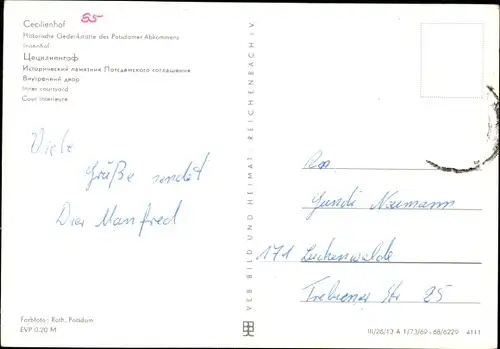 Cecilienhof
55
Historische Gedenkstätte des Potsdamer Abkommens
Innenhof
Цецилиенгоф
Исторический памятник Потсдамского соглашения
Внутренний двор
Inner courtyard
Cour intérieure
Viele
Grüße sendet
Dir Manfred
VEB BILD UND HEIMAT REICHENBACH i V
An
Gundi Naumann
171 Luckenwalde
Trebiner Str 25
Farbfoto: Roth, Potsdam
EVP 0.20 M
III/26/13 A 1/73/69 - 68/6229 4111